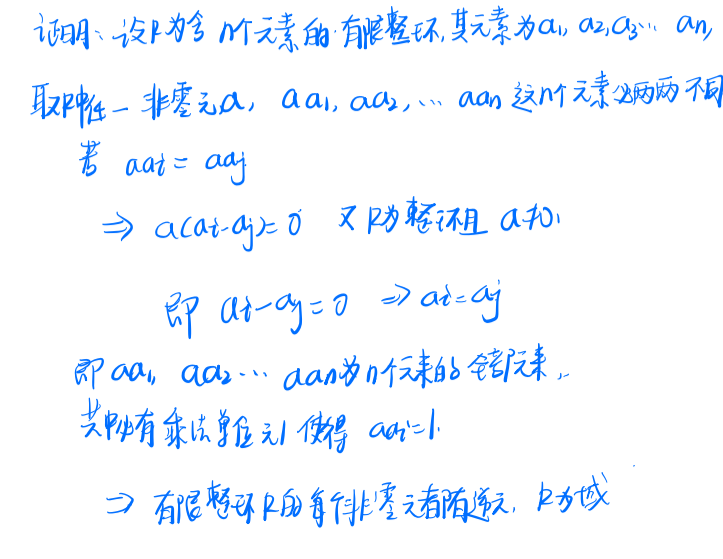 证明: 设R为含n个元素的有限整环,其元素为a₁, a₂, a₃… aₙ,
取R中任一非零元a, aa₁, aa₂, … aaₙ 这n个元素必两两不同
若 aaᵢ = aaⱼ
⇒ a(aᵢ-aⱼ)=0 又R为整环且 a≠0,
即 aᵢ-aⱼ=0 ⇒ aᵢ=aⱼ
即 aa₁, aa₂… aaₙ为n个元素的全部元素,
其中必有乘法单位元1 使得 aaᵢ=1.
⇒ 有限整环R的每个非零元都有逆元, R为域